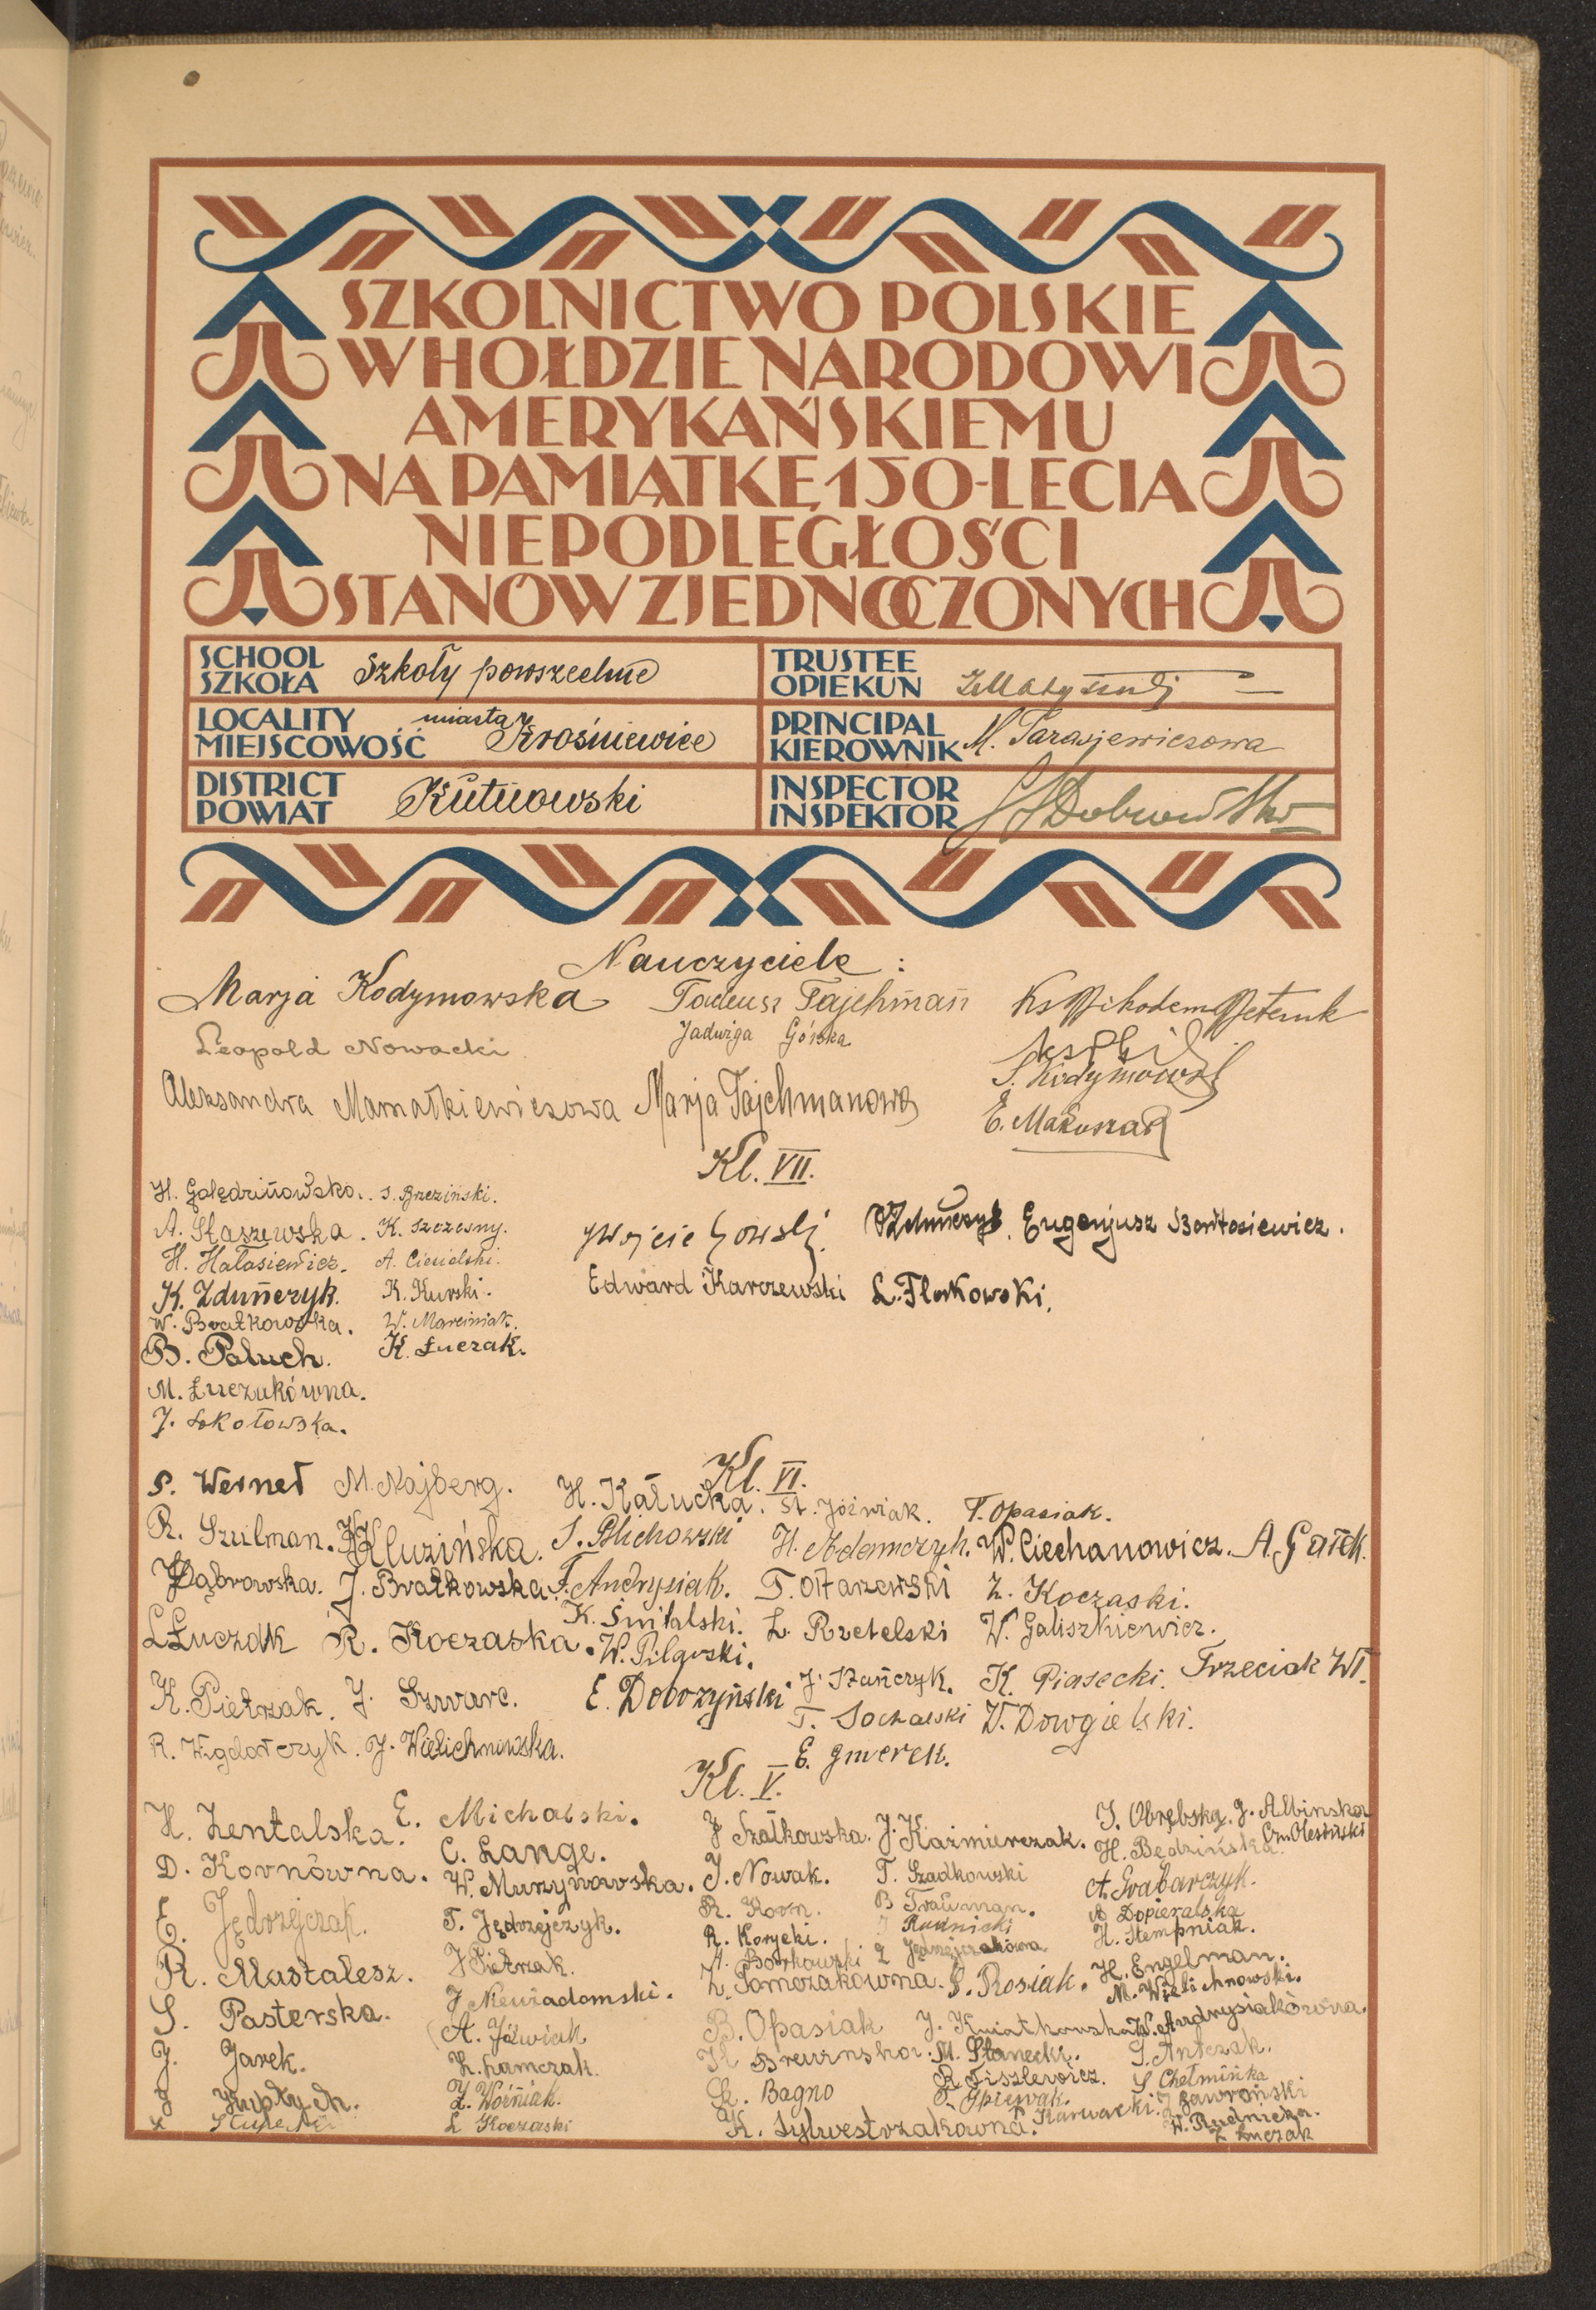 SZKOLNICTWO POLSKIE
W HOŁDZIE NARODOWI
AMERYKAŃSKIEMU
NA PAMIĄTKĘ 150-LECIA
NIEPODLEGŁOŚCI
STANÓW ZJEDNOCZONYCH
SCHOOL
SZKOŁA Szkoły powszechne
TRUSTEE
OPIEKUN
LOCALITY
MIEJSCOWOŚĆ miasta Krośniewice
PRINCIPAL
KIEROWNIK M. Tarasjewiczowa
DISTRICT
POWIAT Kutnowski
INSPECTOR
INSPEKTOR
Nauczyciele :
Marja Kodymowska Tadeusz Tajchman
Leopold Nowacki Jadwiga Górska
S. Kodymowski
Aleksandra Mamałkiewiczowa Marja Tajchmanowa
E. Makuszak
Kl. VII.
S. Brzeziński.
A. Staszewska. K. Szczesny.
H. Hałasiewicz.
K. Zduńczyk. K. Kurski.
W. Bratkowska. W. Marciniak.
B. Paluch. K. Łuczak.
M. Łuczakówna.
J. Sokołowska.
Wojciechowski Eugenjusz Bartosiewicz.
Edward Karczewski L. Flakowski.
Kl. VI.
S. Werner M. Najberg. H. Kałucka. St. Jóźwiak. T. Opasiak.
R. Szulman. Kluzińska. S. Blichowski H. Adamczyk. W. Ciechanowicz. A. Gałek.
Dąbrowska. J. Bratkowska. F. Andrysiak. T. Ołtarzewski Z. Koczaski.
L Łuczak R. Koczaska. K. Śnitalski. L. Rzetelski W. Galiszkiewicz.
W. Pilarski.
K. Pietrzak. J. Szwarc. E. Doboszyński J. Stańczyk. K. Piasecki. Trzeciak Wł.
T. Sochalski W. Dowgielski.
J. Wielichnowska.
E. Gmerek.
Kl. V.
H. Zentalska. E. Michalski. J Szałkowska. J. Kaźmierczak. I. Obrębska. J. Albinska
D. Kornówna. C. Lange. H. Będzińska. Cz. Olesiński
W. Murzynowska. J. Nowak. T. Szadkowski A. Grabarczyk.
E. Jędrzejczak. T. Jędrzejczyk. R. Korn. B Trauman. A Dopieralska
R. Mastalesz. J Pietrzak. R. Korycki. J Rudnicki H. Stempniak.
A. Borkowski Jędrzejczakówna. H. Engelman.
S. Pasterska. J Niewiadomski. Z. Tomczakówna. S. Rosiak. M. Wielichnowski.
J. Jarek. A. Jóźwiak B. Opasiak J. Kwiatkowska W. Andrysiakówna.
H. Łamczak. M. Stanecki. S. Antczak.
Z. Woźniak. Bagno R. Fiszlewicz. S Chełmińska
L Koczaski T. Śpiewak. J Gawroński
K. Sylwestrzakówna. Karwacki. W. Rudnicka.
Z Łuczak